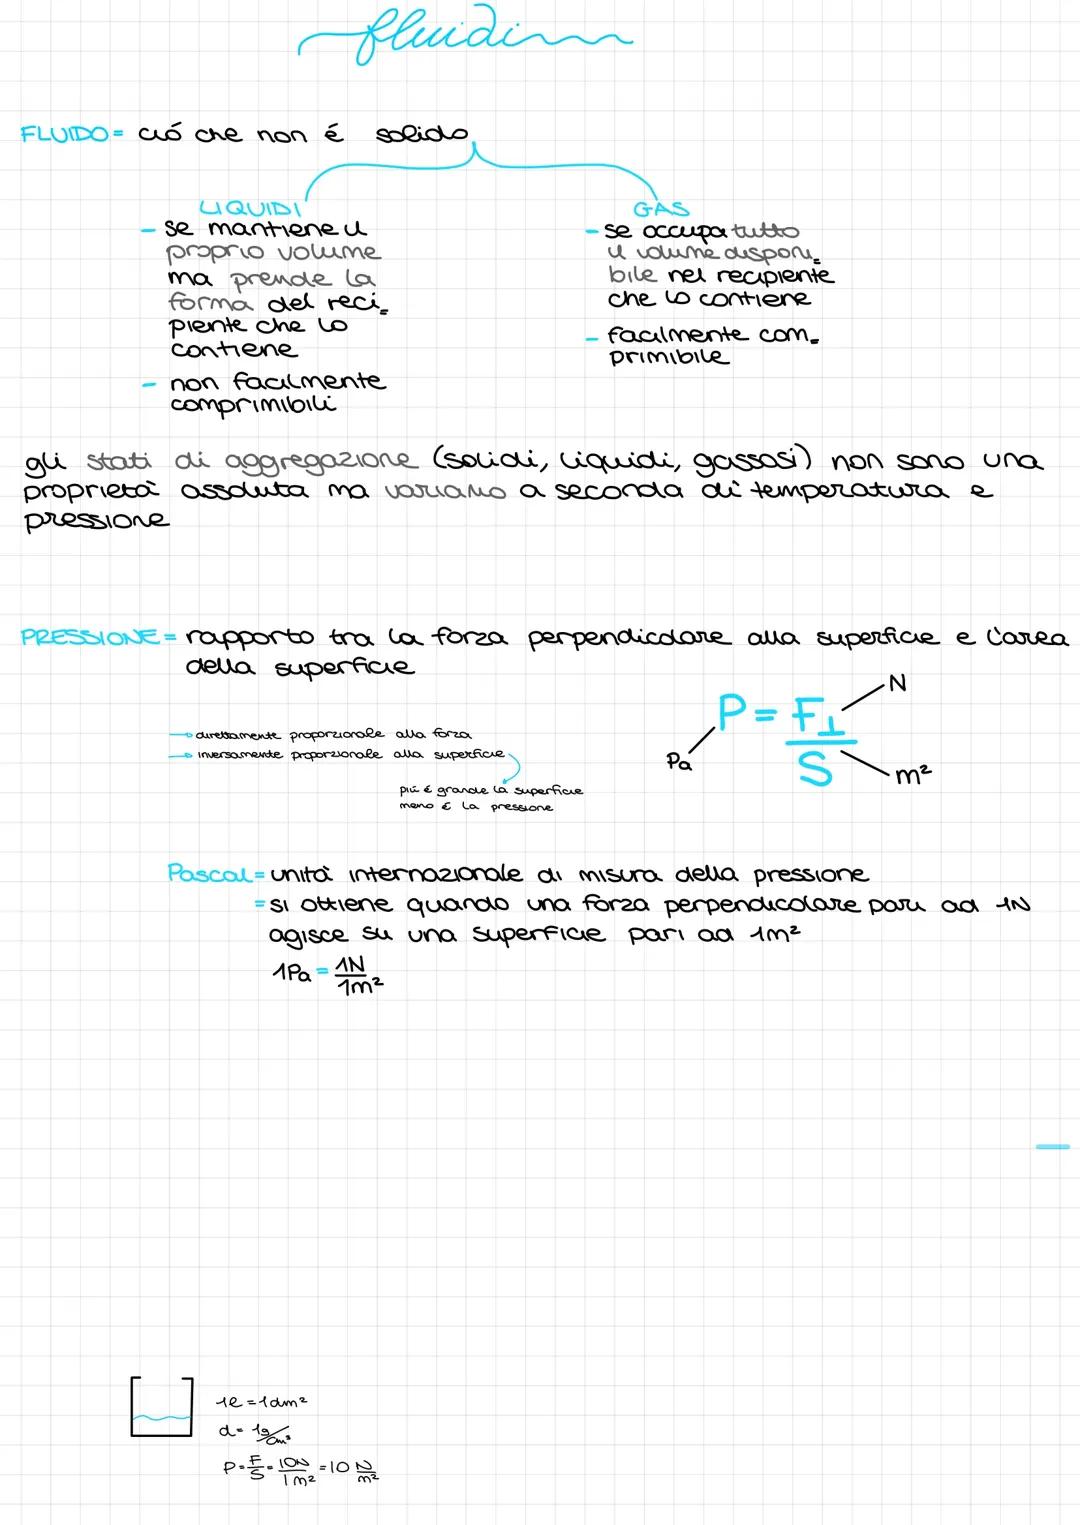 fluidi
FLUIDO = ció che non é solido
LIQUIDI
- se mantiene il
proprio volume
ma prende la
forma del reci=
piente che lo
contiene
- non facilmente
comprimibili
GAS
- se occupa tutto
il volume disponi=
bile nel recipiente
che lo contiene
- facilmente com=
primibile
gli stati di aggregazione (solidi, liquidi, gassosi) non sono una
proprietà assoluta ma variano a seconda di temperatura e
pressione
PRESSIONE = rapporto tra la forza perpendicolare alla superficie e l'area
della superficie
→ direttamente proporzionale alla forza
→ inversamente proporzionale alla superficie
piú é grande la superficie
meno é la pressione
P = F⊥
S
N
Pa
m²
Pascal = unità internazionale di misura della pressione
= si ottiene quando una forza perpendicolare pari ad 1N
agisce su una superficie pari ad 1m²
1Pa = 1N/1m²
1l = 1dm²
d = 1g/cm³
P = F/S = 10N/1m² = 10 N/m²